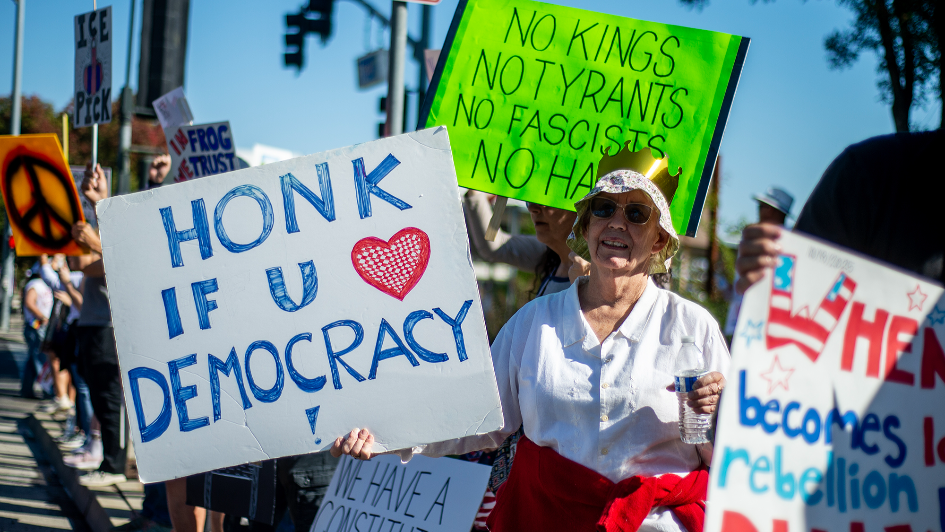 ICE
PICK
IN FROG
WE TRUST
NO KINGS
NO TYRANTS
NO FASCISTS
NO
HONK
IF U
DEMOCRACY
!
WE HAVE A
WHEN
becomes
rebellion